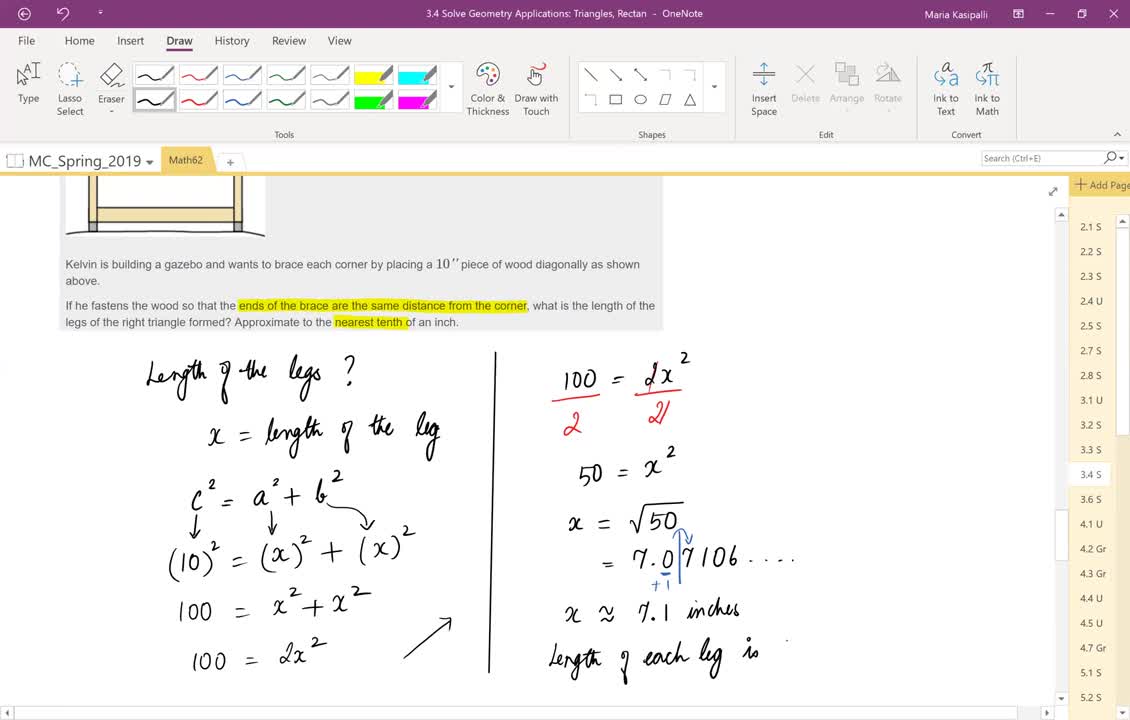 3.4 Solve Geometry Applications: Triangles, Rectan - OneNote
Maria Kasipalli
File Home Insert Draw History Review View
Type
Lasso Select
Eraser
Color & Thickness
Draw with Touch
Insert Space
Delete
Arrange
Rotate
Ink to Text
Ink to Math
Tools
Shapes
Edit
Convert
MC_Spring_2019
Math62
Search (Ctrl+E)
Add Page
Kelvin is building a gazebo and wants to brace each corner by placing a 10″ piece of wood diagonally as shown
above.
If he fastens the wood so that the ends of the brace are the same distance from the corner, what is the length of the
legs of the right triangle formed? Approximate to the nearest tenth of an inch.
Length of the legs ?
x = length of the leg
c² = a² + b²
(10)² = (x)² + (x)²
100 = x² + x²
100 = 2x²
100 = 2x²
2 2
50 = x²
x = √50
= 7.07106 ....
+1
x ≈ 7.1 inches
Length of each leg is
2.1 S
2.2 S
2.3 S
2.4 U
2.5 S
2.7 S
2.8 S
3.1 U
3.2 S
3.3 S
3.4 S
3.6 S
4.1 U
4.2 Gr
4.3 Gr
4.4 U
4.5 U
4.7 Gr
5.1 S
5.2 S